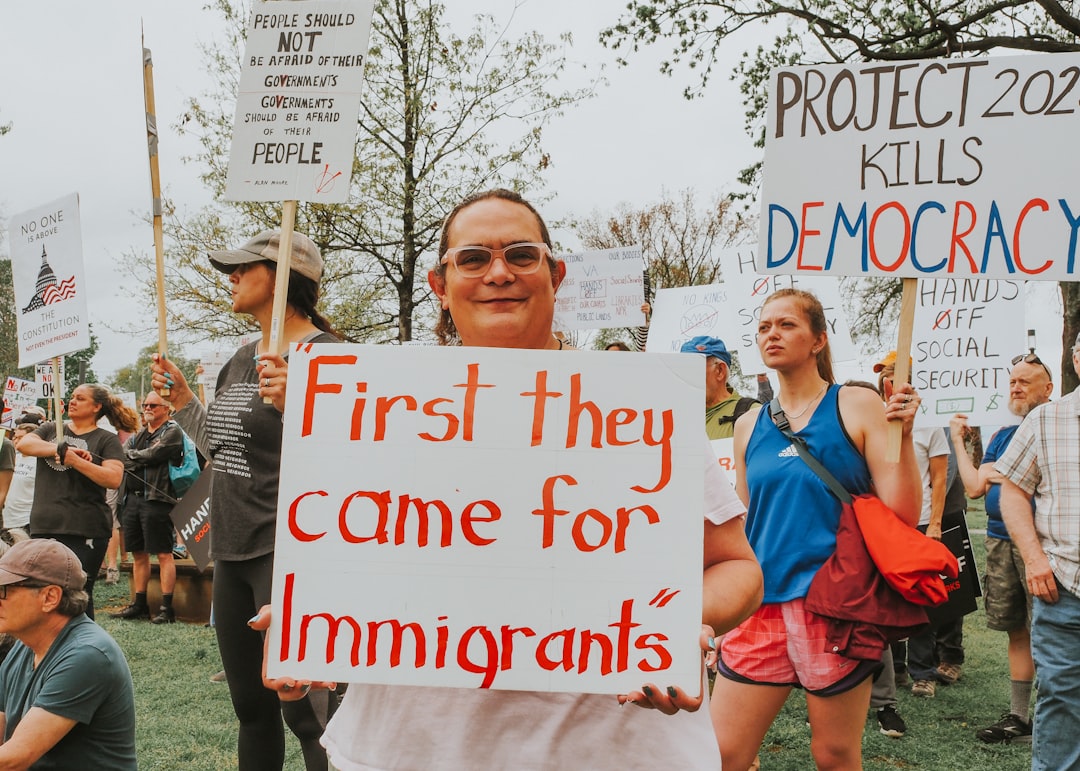 PEOPLE SHOULD
NOT
BE AFRAID OF THEIR
GOVERNMENTS
GOVERNMENTS
SHOULD BE AFRAID
OF THEIR
PEOPLE
- ALAN MOORE
PROJECT 202
KILLS
DEMOCRACY
NO ONE
IS ABOVE
THE
CONSTITUTION
NOT EVEN THE PRESIDENT
"First they
came for
Immigrants"
OUR BODIES
VA
HANDS
OFF
LIBRARIES
PUBLIC
NPR
NO KINGS
HANDS
OFF
SOCIAL
SECURITY
adidas
HAN